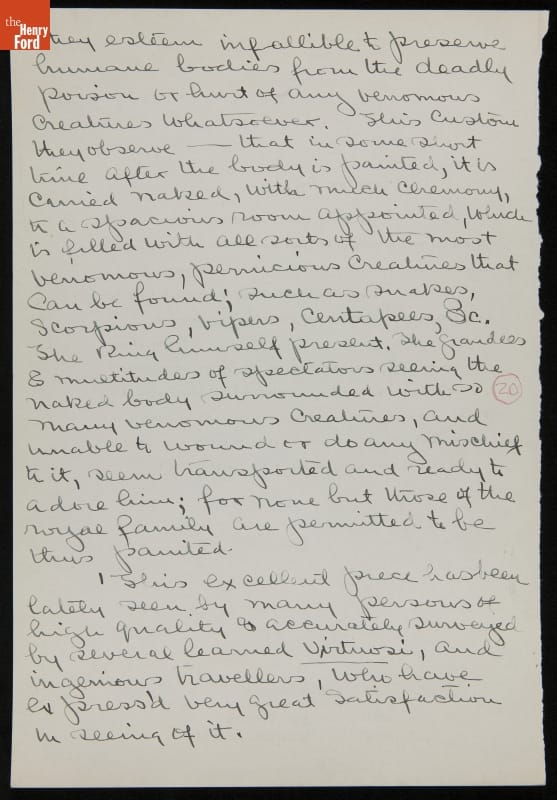 the
Henry
Ford
they esteem infallible to preserve
humane bodies from the deadly
poison or hurt of any venomous
Creatures whatsoever. This Custom
they observe — that in some short
time after the body is painted, it is
Carried naked, with much Ceremony,
to a spacious room appointed, which
is filled with all sorts of the most
venomous, pernicious Creatures that
Can be found; such as snakes,
Scorpions, vipers, Centapees, &c.
The King himself present. The grandees
& multitudes of spectators seeing the
naked body surrounded with so
20
many venomous Creatures, and
unable to wound or do any mischief
to it, seem transported and ready to
adore him; for none but those of the
royae family are permitted to be
thus painted.
' This excellent piece has been
lately seen by many persons of
high quality & accurately surveyed
by several learned Virtuosi, and
ingenious travellers, who have
express'd very great Satisfaction
in seeing of it.